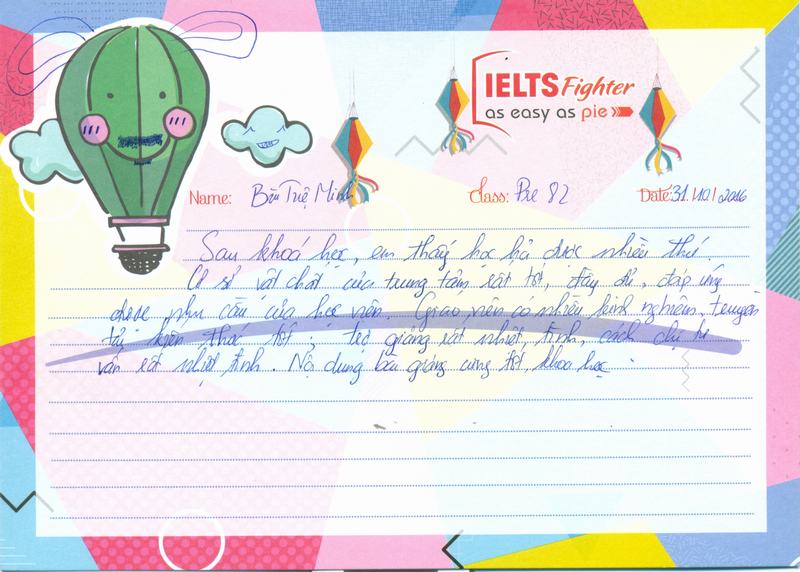 IELTS Fighter
as easy as pie
Name: Bùi Tuệ Minh Class: Pre 82 Date: 31/10/2016
Sau khoá học, em thấy học hỏi được nhiều thứ.
Cơ sở vật chất của trung tâm rất tốt, đầy đủ, đáp ứng
được nhu cầu của học viên. Giáo viên có nhiều kinh nghiệm, truyền
tải kiến thức tốt, trợ giảng rất nhiệt tình, các chị tư
vấn rất nhiệt tình. Nội dung bài giảng cũng tốt, khoa học